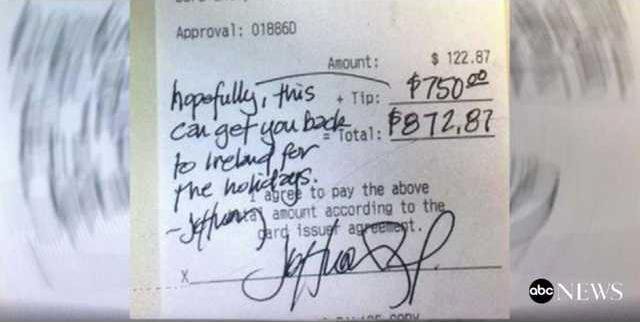 Approval: 01886D
Amount: $ 122.87
+ Tip: $750.00
= Total: $872.87
hopefully, this
can get you back
to Ireland for
the holidays.
I agree to pay the above
amount according to the
card issuer agreement.
X
abc NEWS